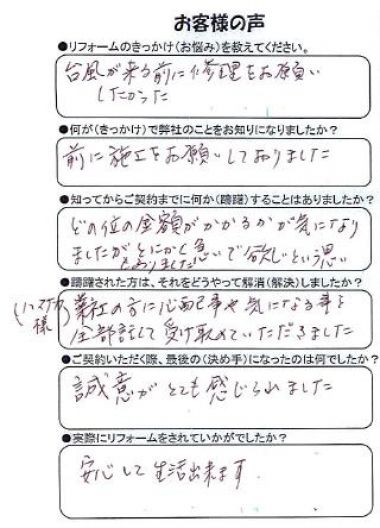 お客様の声
●リフォームのきっかけ(お悩み)を教えてください。
台風が来る前に修理をお願い
したかった
●何が(きっかけ)で弊社のことをお知りになりましたか?
前に施工をお願いしておりました
●知ってからご契約までに何か(躊躇)することはありましたか?
どの位の金額がかかるかが気になり
ましたがとにかく急いで欲しいという思い
もありました
●躊躇された方は、それをどうやって解消(解決)しましたか?
業社の方に心配事や気になる事を
全部話して受け取めていただきました
●ご契約いただく際、最後の(決め手)になったのは何でしたか?
誠意がとても感じられました
●実際にリフォームをされていかがでしたか?
安心して生活出来ます。